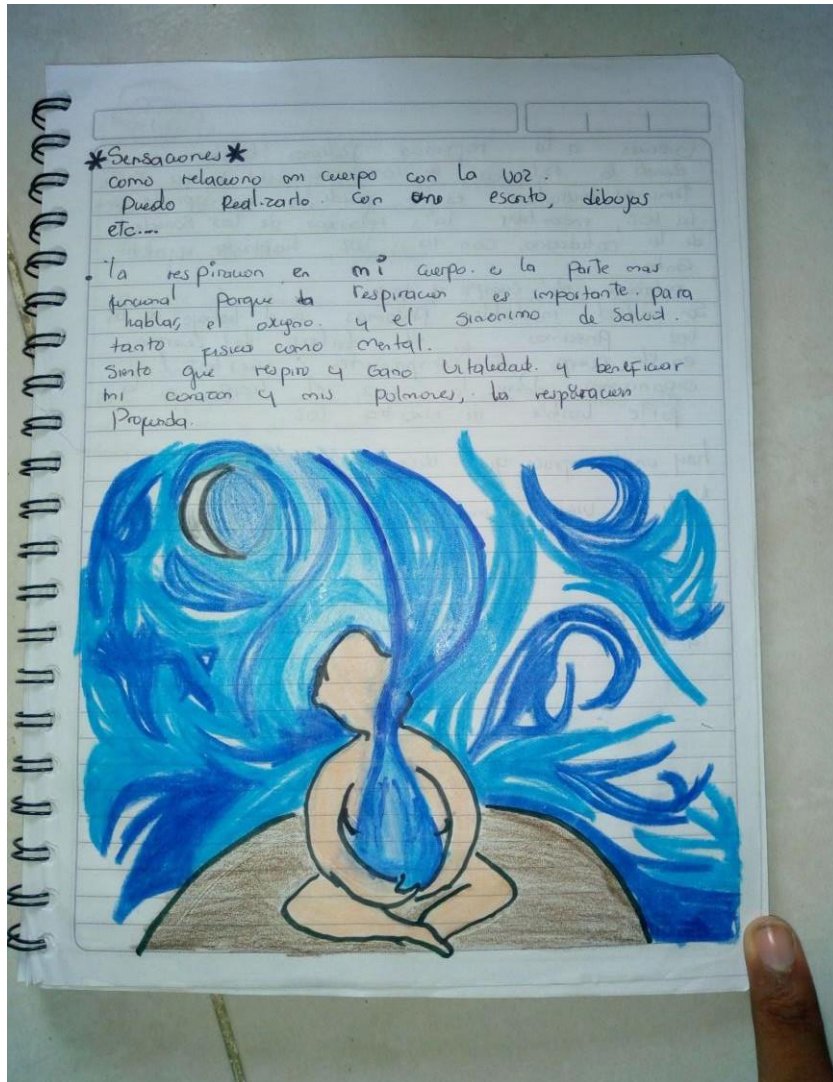 *Sensaciones*
como relaciono mi cuerpo con la voz.
Puedo Realizarlo. con uno escrito, dibojas
etc....
. la respiracion en mi cuerpo. e la parte mas
funcional porque la respiracion es importante. para
hablar, el oxigno. y el sinonimo de Salud.
tanto fisico como mental.
Siento que respiro y Gano Vitaledad. y beneficiar
mi corazon y mis polmones, la respiracion
Profunda.